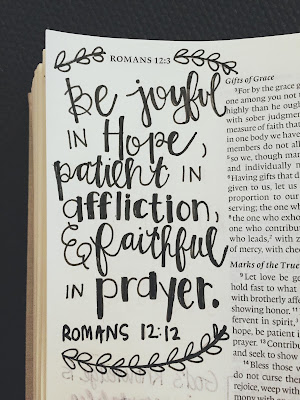 ROMANS 12:3
Be joyful
IN Hope,
patient IN
affliction,
& faithful
IN prayer.
ROMANS 12:12
Gifts of Grace
³For by the grace
one among you not
highly than he
with sober
measure of faith that
in one body we have
members do not all
⁵so we, though many
and individually
⁶Having gifts that
given to us, let us
proportion to our
serving; the one
the one who
one who
who leads,² with
of mercy, with
Marks of the True
⁹Let love be
hold fast to what
with brotherly
showing honor. ¹¹
fervent in spirit,³
hope, be patient
prayer. ¹³
and seek to show
¹⁴Bless those
do not curse them
rejoice, weep with
mony with